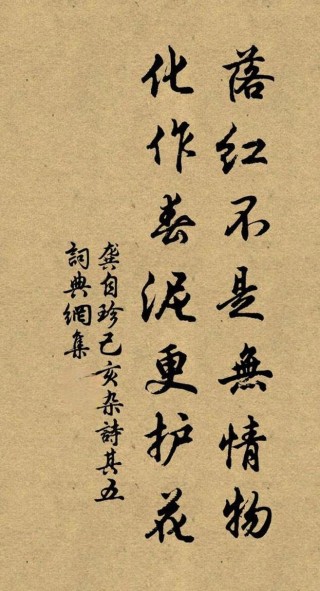 落红不是無情物
化作春泥更护花
龚自珍己亥杂詩其五
詞典網集